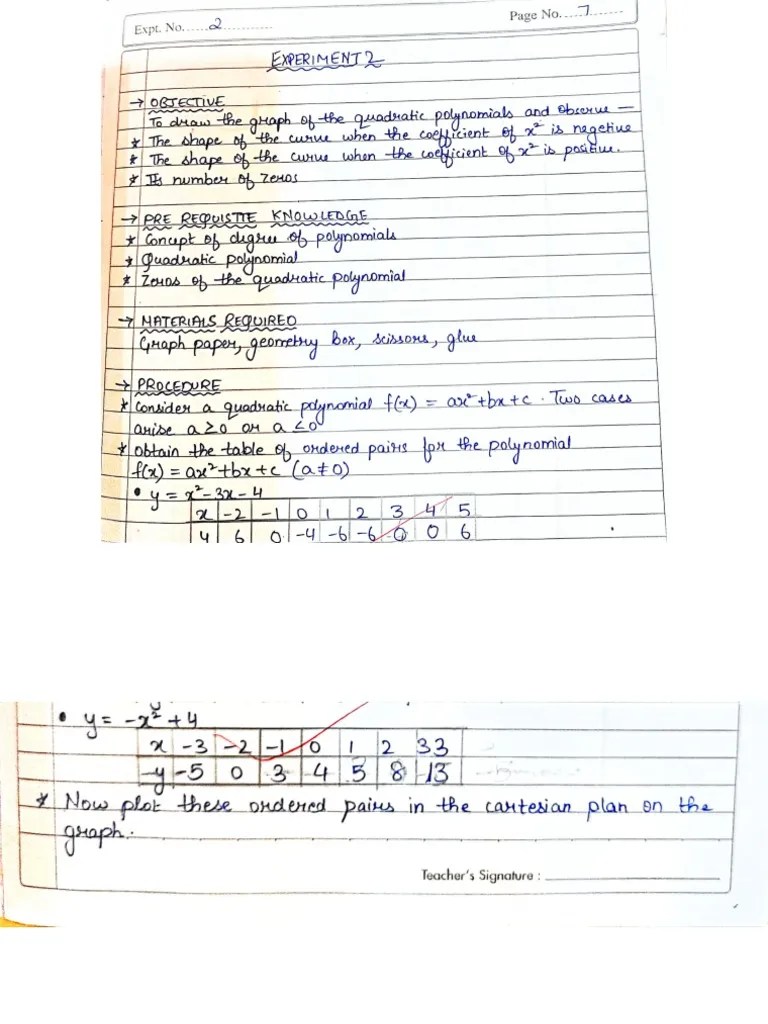 Expt. No. 2
Page No. 7
EXPERIMENT 2
→ OBJECTIVE
To draw the graph of the quadratic polynomials and observe —
* The shape of the curve when the coefficient of x² is negetive
* The shape of the curve when the coefficient of x² is positive.
* Its number of zeros
→ PRE REQUISTIE KNOWLEDGE
* Concept of degree of polynomials
* Quadratic polynomial
* Zeros of the quadratic polynomial
→ MATERIALS REQUIRED
Graph paper, geometry box, scissors, glue
→ PROCEDURE
* Consider a quadratic polynomial f(x) = ax²+bx+c. Two cases
arise a≥0 or a<0
* Obtain the table of ordered pairs for the polynomial
f(x) = ax²+bx+c (a≠0)
• y = x²-3x-4
x -2 -1 0 1 2 3 4 5
y 6 0 -4 -6 -6 0 6
• y = -x²+4
x -3 -2 -1 0 1 2 33
-y -5 0 3 4 5 8 -13
* Now plot these ordered pairs in the cartesian plan on the
graph.
Teacher's Signature :